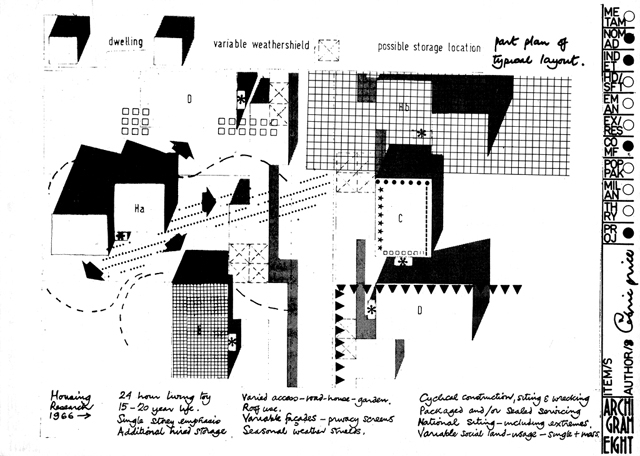 dwelling
variable weathershield
possible storage location
part plan of
typical layout.
D
Hb
*
*
Ha
*
C
*
*
*
D
Housing
Research
1966 →
24 hour living toy
15-20 year life.
Single storey emphasis
Additional hired storage
Varied access-road-house-garden.
Roof use.
Variable façades - privacy screens
& Seasonal weather shields.
Cyclical construction, siting & wrecking
Packaged and/or sealed servicing
National siting - including extremes.
Variable social land-usage - single + mass.
ME
TAM
NOM
AD
IND
ET
HD/
SFT
EM
AN
EX/
RES
CO
MF
POP
PAK
MIL
ANT
TH
RY
PR
OJ
ITEM/S
AUTHOR/S Cedric Price
ARCHI
GRAM
EIGHT